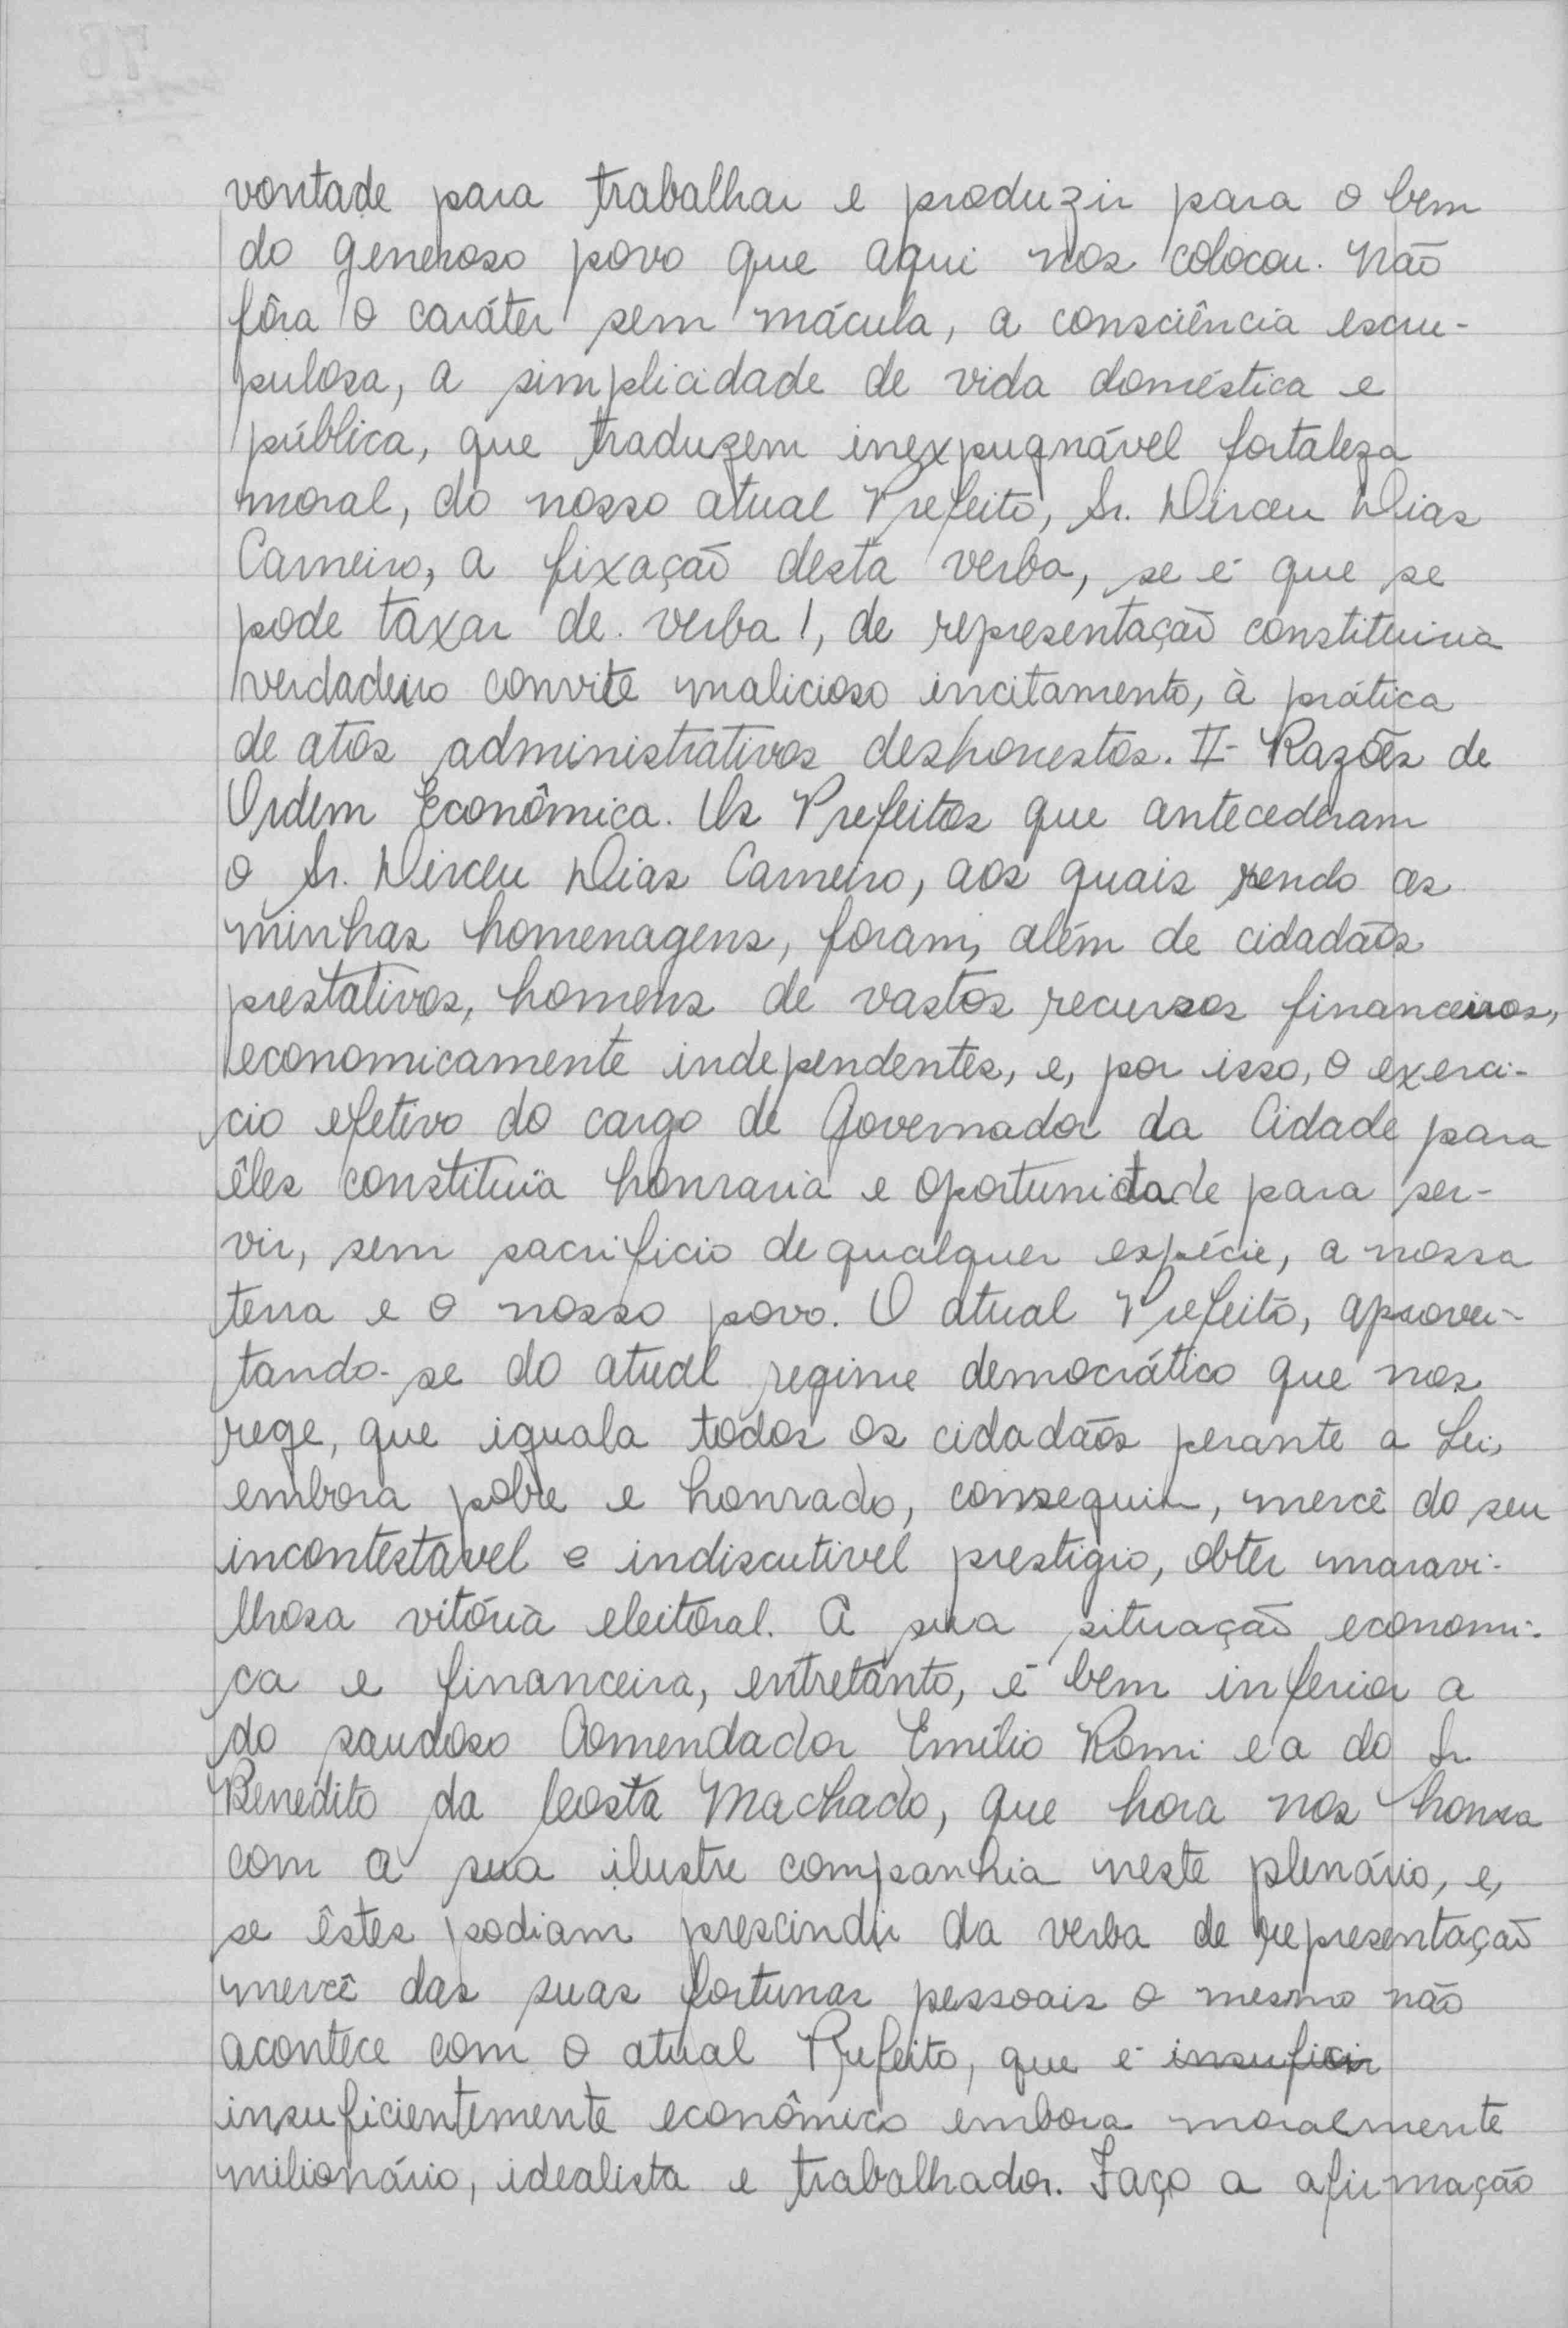 vontade para trabalhar e produzir para o bem
do generoso povo que aqui nos colocou. Não
fôra o caráter sem mácula, a consciência escru-
pulosa, a simplicidade de vida doméstica e
pública, que traduzem inexpugnável fortaleza
moral, do nosso atual Prefeito, Sr. Dirceu Dias
Carneiro, a fixação desta verba, se é que se
pode taxar de verba!, de representação constituiria
verdadeiro convite malicioso incitamento, à prática
de atos administrativos deshonestos. II- Razões de
Ordem Econômica. Os Prefeitos que antecederam
o Sr. Dirceu Dias Carneiro, aos quais rendo as
minhas homenagens, foram, além de cidadãos
prestativos, homens de vastos recursos financeiros,
economicamente independentes, e, por isso, o exercí-
cio efetivo do cargo de Governador da Cidade para
êles constituïa honraria e oportunidade para ser-
vir, sem sacrificio de qualquer espécie, a nossa
terra e o nosso povo. O atual Prefeito, aprovei-
tando-se do atual regime democrático que nos
rege, que iguala todos os cidadãos perante a Lei,
embora pobre e honrado, conseguiu, mercê do seu
incontestavel e indiscutivel prestigio, obter maravi-
lhosa vitória eleitoral. A sua situação economi-
ca e financeira, entretanto, é bem inferior a
do saudoso Comendador Emílio Romi e a do Sr.
Benedito da Costa Machado, que hora nos honra
com a sua ilustre companhia neste plenário, e,
se êstes podiam prescindir da verba de representação
mercê das suas fortunas pessoais o mesmo não
acontece com o atual Prefeito, que é insuficir
insuficientemente econômico embora moralmente
milionário, idealista e trabalhador. Faço a afirmação